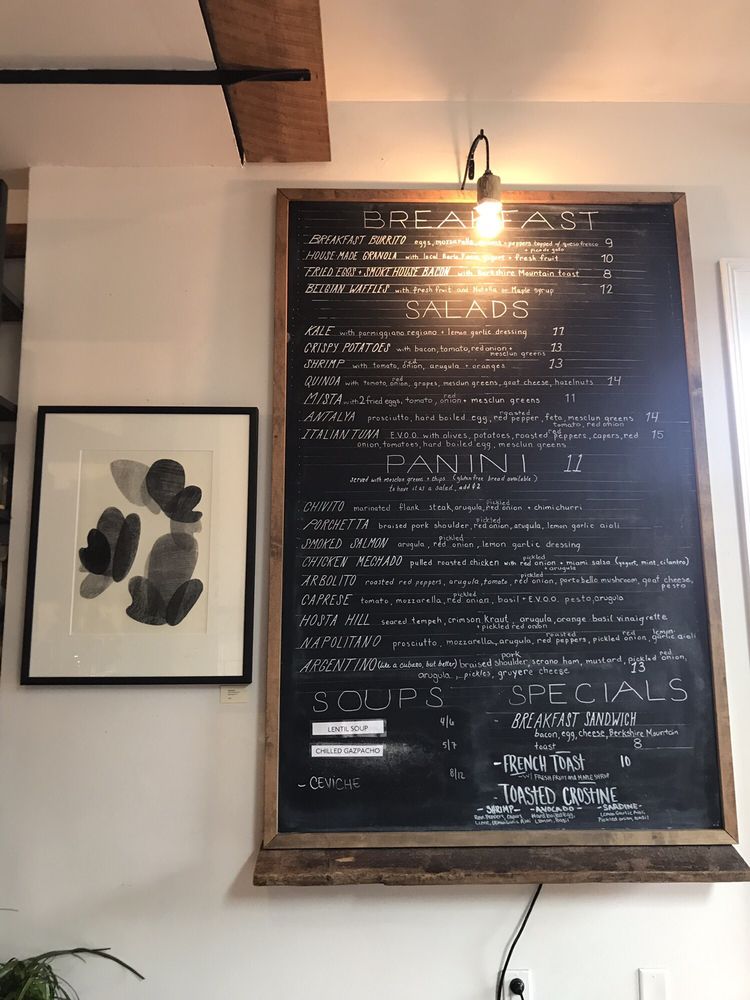 BREAKFAST
BREAKFAST BURRITO eggs, mozzarella, peppers topped w/ queso fresco 9
+ pico de gallo
HOUSE-MADE GRANOLA with local yogurt + fresh fruit 10
FRIED EGGS + SMOKEHOUSE BACON with Berkshire Mountain toast 8
BELGIAN WAFFLES with fresh fruit and Nutella or Maple syrup 12
SALADS
KALE with parmiggiano regiano + lemon garlic dressing 11
CRISPY POTATOES with bacon, tomato, red onion + 13
mesclun greens
SHRIMP with tomato, red onion, arugula + oranges 13
QUINOA with tomato, red onion, grapes, mesclun greens, goat cheese, hazelnuts 14
MISTA with 2 fried eggs, tomato, red onion + mesclun greens 11
ANTALYA prosciutto, hard boiled egg, roasted red pepper, feta, mesclun greens 14
tomato, red onion
ITALIAN TUNA E.V.O.O. with olives, potatoes, roasted red peppers, capers, red 15
onion, tomatoes, hard boiled egg, mesclun greens
PANINI 11
served with mesclun greens + chips (gluten free bread available)
to have it as a salad, add $2
CHIVITO marinated flank steak, arugula, pickled red onion + chimichurri
PORCHETTA braised pork shoulder, pickled red onion, arugula, lemon garlic aioli
SMOKED SALMON arugula, pickled red onion, lemon garlic dressing
CHICKEN MECHADO pulled roasted chicken with pickled red onion + miami salsa (yogurt, mint, cilantro)
+ arugula
ARBOLITO roasted red peppers, arugula, tomato, pickled red onion, portobello mushroom, goat cheese,
pesto
CAPRESE tomato, mozzarella, pickled red onion, basil + E.V.O.O. pesto, arugula
HOSTA HILL seared tempeh, crimson Kraut, arugula, orange basil vinaigrette
+ pickled red onion
NAPOLITANO prosciutto, mozzarella, arugula, roasted red peppers, pickled red onion, lemon garlic aioli
ARGENTINO (like a cubano, but better) braised pork shoulder, serano ham, mustard, pickled red onion,
arugula, pickles, gruyere cheese 13
SOUPS
LENTIL SOUP 4/6
CHILLED GAZPACHO 5/7
- CEVICHE 8/12
SPECIALS
- BREAKFAST SANDWICH
bacon, egg, cheese, Berkshire Mountain
toast 8
- FRENCH TOAST 10
w/ FRESH FRUIT and MAPLE SYRUP
- TOASTED CROSTINE
- SHRIMP - - AVOCADO - - SARDINE -
Hard boiled Egg, Lemon Garlic Aioli,
Lemon, Basil Pickled onion, basil